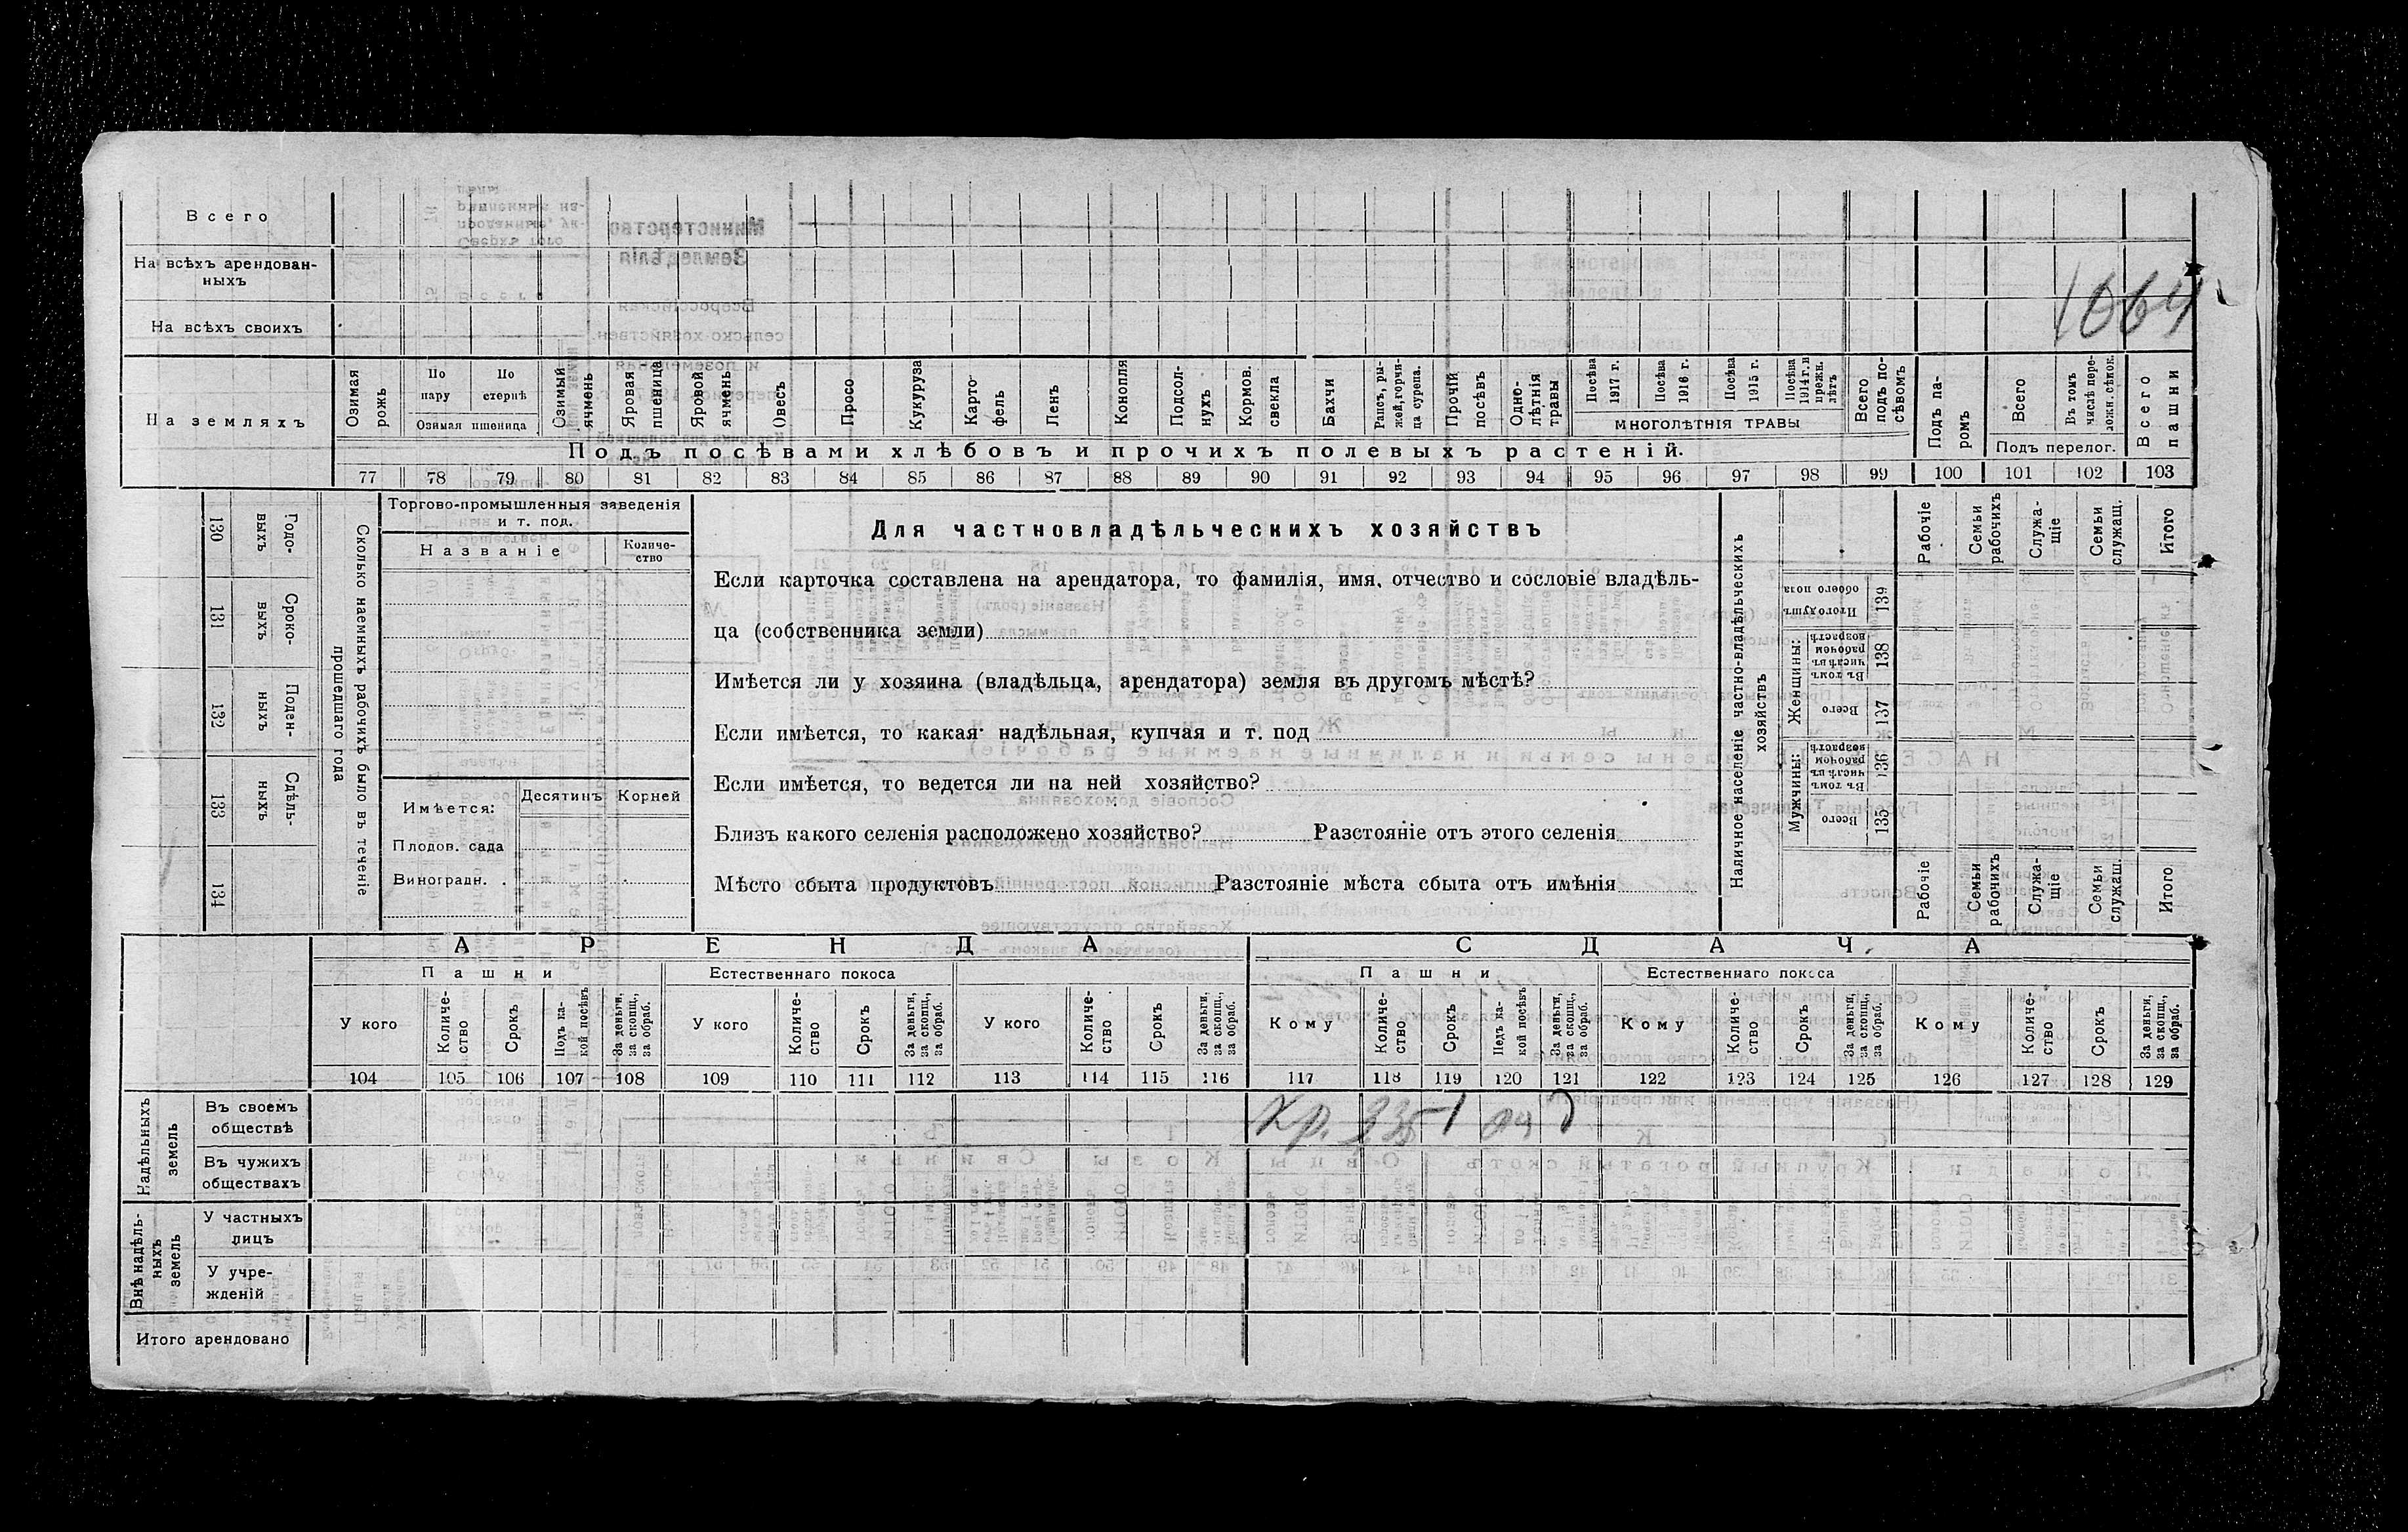 Всего
На всѣхъ арендован-
ныхъ
На всѣхъ своихъ
1064
На земляхъ
Озимая рожь
По пару
По стернѣ
Озимая пшеница
Озимый ячмень
Яровая пшеница
Яровой ячмень
Овесъ
Просо
Кукуруза
Карто-
фель
Ленъ
Конопля
Подсол-
нухъ
Кормов. свекла
Бахчи
Рапсъ, ры-
жей, горчи-
ца сурепа.
Прочій посѣвъ
Одно-
лѣтнія травы
Посѣва 1917 г.
Посѣва 1916 г.
Посѣва 1915 г.
Посѣва 1914 г. и прежн. лѣтъ
МНОГОЛѢТНІЯ ТРАВЫ
Всего подъ по-
сѣвомъ
Подъ па-
ромъ
Всего
Въ томъ числѣ пере-
ложн. сѣнок.
Подъ перелог.
Всего пашни
Подъ посѣвами хлѣбовъ и прочихъ полевыхъ растеній.
77 78 79 80 81 82 83 84 85 86 87 88 89 90 91 92 93 94 95 96 97 98 99 100 101 102 103
Сколько наемныхъ рабочихъ было въ теченіе
прошедшаго года
Годо-
выхъ
130
Сроко-
выхъ
131
Поден-
ныхъ
132
Сдѣль-
ныхъ
133
134
Торгово-промышленныя заведенія
и т. под.
Названіе
Количе-
ство
Имѣется:
Десятинъ
Корней
Плодов. сада
Виноградн.
Для частновладѣльческихъ хозяйствъ
Если карточка составлена на арендатора, то фамилія, имя, отчество и сословіе владѣль-
ца (собственника земли)
Имѣется ли у хозяина (владѣльца, арендатора) земля въ другомъ мѣстѣ?
Если имѣется, то какая надѣльная, купчая и т. под
Если имѣется, то ведется ли на ней хозяйство?
Близъ какого селенія расположено хозяйство? Разстояніе отъ этого селенія
Мѣсто сбыта продуктовъ Разстояніе мѣста сбыта отъ имѣнія
Наличное населеніе частно-владѣльческихъ
хозяйствъ
Рабочіе
Семьи рабочихъ
Служа-
щіе
Семьи служащ.
Итого
Итого душъ обоего пола
139
Женщины:
Въ томъ числѣ въ рабочемъ возрастѣ
138
Всего
137
Мужчины:
Въ томъ числѣ въ рабочемъ возрастѣ
136
Всего
135
Рабочіе
Семьи рабочихъ
Служа-
щіе
Семьи служащ.
Итого
АРЕНДА
СДАЧА
Пашни
Естественнаго покоса
Пашни
Естественнаго покоса
У кого
Количе-
ство
Срокъ
Подъ ка-
кой посѣвъ
За деньги, за скопщ., за обраб.
У кого
Количе-
ство
Срокъ
За деньги, за скопщ., за обраб.
У кого
Количе-
ство
Срокъ
За деньги, за скопщ., за обраб.
Кому
Количе-
ство
Срокъ
Подъ ка-
кой посѣвъ
За деньги, за скопщ., за обраб.
Кому
Количе-
ство
Срокъ
За деньги, за скопщ., за обраб.
Кому
Количе-
ство
Срокъ
За деньги, за скопщ., за обраб.
104 105 106 107 108 109 110 111 112 113 114 115 116 117 118 119 120 121 122 123 124 125 126 127 128 129
Надѣльныхъ земель
Въ своемъ
обществѣ
Кр.
Въ чужихъ
обществахъ
Внѣ надѣль-
ныхъ земель
У частныхъ
лицъ
У учре-
жденій
Итого арендовано